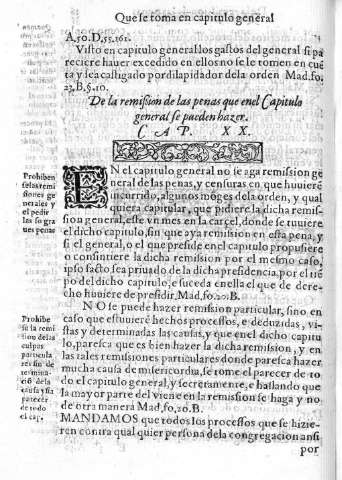 Que se toma en capitulo general
A,50.D,55.162.
Visto en capitulo general los gastos del general si pa
reciere hauer excedido en ellos no se le tomen en cuẽ
ta y sea castigado por dilapidador dela orden Mad.fo.
23.B.§.10.
De la remission de las penas que enel Capitulo
general se pueden hazer.
CAP. XX.
Prohiben
se las remi
siones ge
nerales y
el pedir
las so gra
ues penas
EN el capitulo general no se aga remission ge
neral de las penas, y censuras en que huuierẽ
incurrido, algunos mõges dela orden, y qual
quiera capitular, que pidiere la dicha remis-
sion general, este vn mes en la carcel, donde se tuuiere
el dicho capitulo, sin que aya remission en esta pena, y
si el general, o el que preside en el capitulo propusiere
o consintiere la dicha remission por el mesmo caso,
ipso facto sea priuado de la dicha presidencia, por el tiẽ
po del dicho capitulo, e suceda enella el que de dere-
cho huuiere de presidir, Mad, fo, 20. B.
Prohibe
se la remi
sion dela s
culpas
particula
res sin de
termina-
ciõ dela
causa y sin
parecer
de todo
el cap,
NO se puede hazer remission particular, sino en
caso que estuuierẽ hechos processos, e deduzidas, vi-
stas y determinadas las causas, y que enel dicho capitu
lo, paresca que es bien hazer la dicha remission, y en
las tales remissiones particulares donde paresca hazer
mucha causa de misericordia, se tome el parecer de to
do el capitulo general, y secretamente, e hallando que
la mayor parte del viene en la remission se haga y no
de otra manera Mad, fo, 20. B.
MANDAMOS que todos los processos que se hizie-
ren contra qual quier persona dela congregacion ansi
por